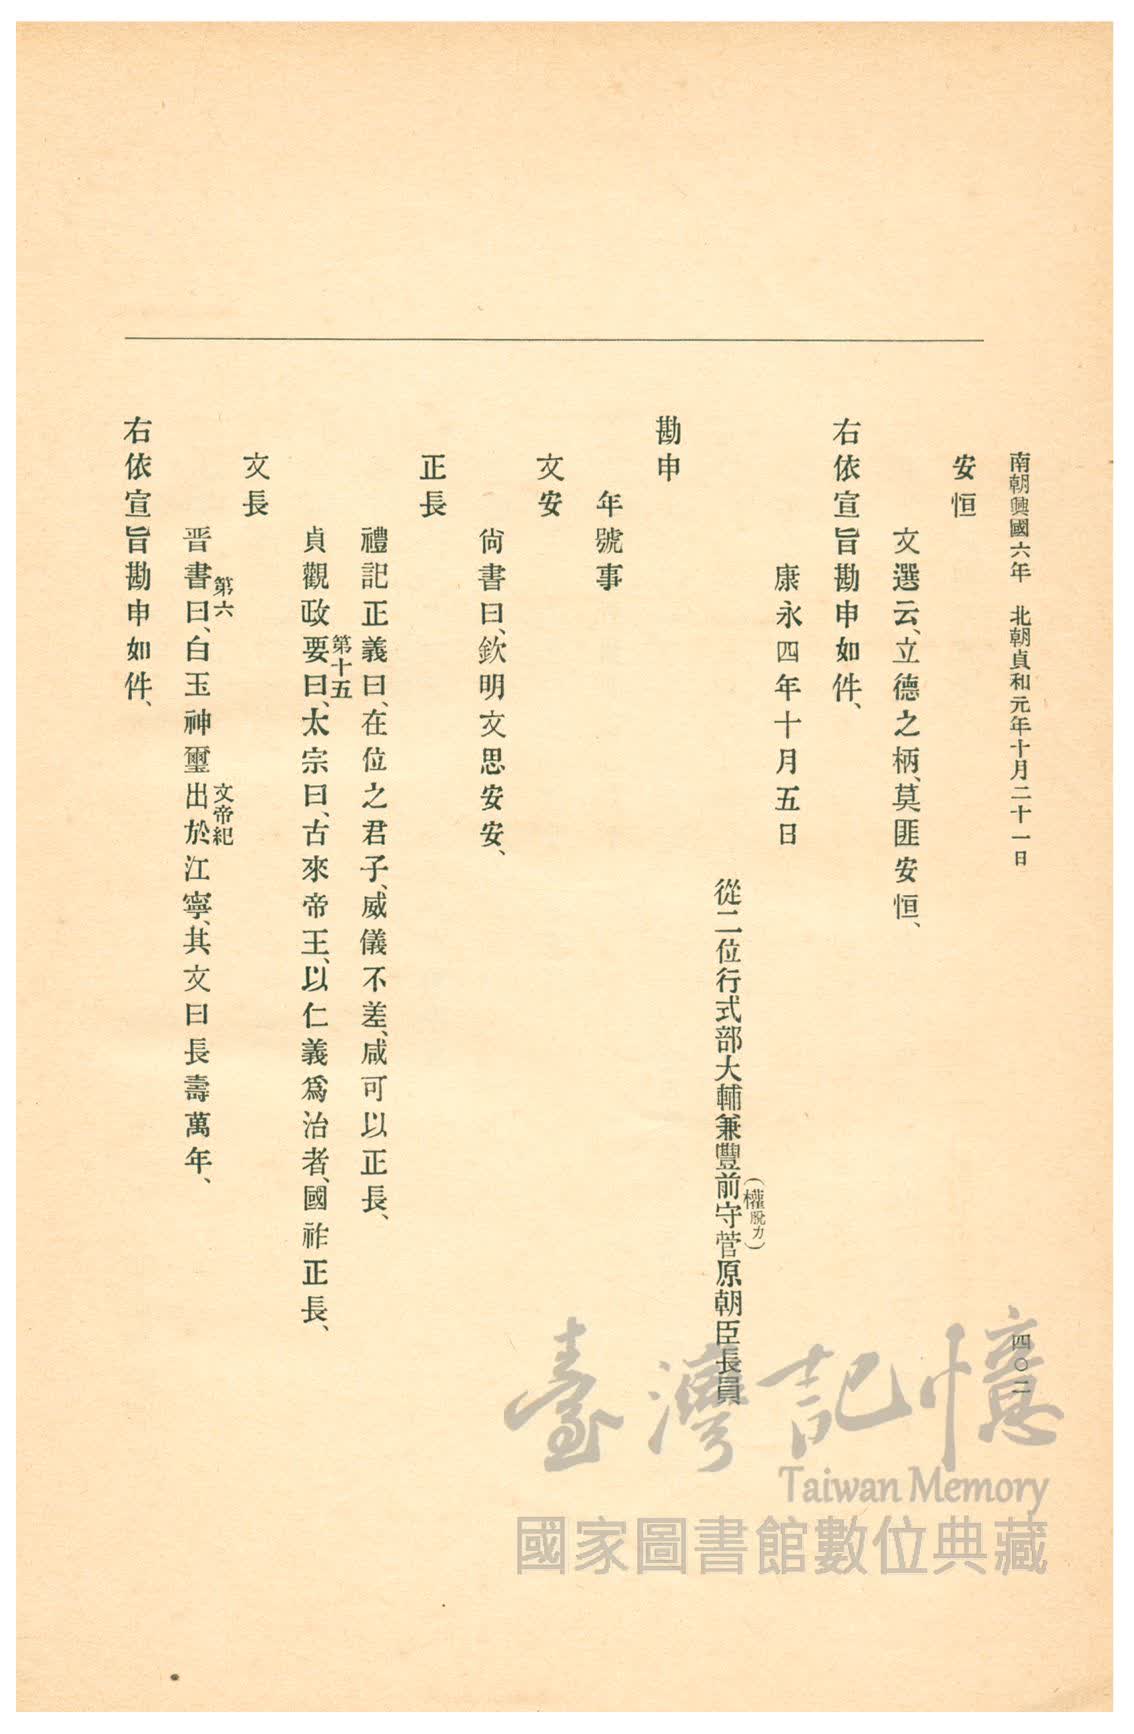 南朝興國六年　北朝貞和元年十月二十一日　四〇二
安恒
文選云、立德之柄、莫匪安恒、
右依宣旨勘申如件、
康永四年十月五日
從二位行式部大輔兼豐前守菅原朝臣長員
（權脫力）
勘申
年號事
文安
尙書曰、欽明文思安安、
正長
禮記正義曰、在位之君子、威儀不差、咸可以正長、
第十五
貞觀政要曰、太宗曰、古來帝王、以仁義爲治者、國祚正長、
文長
第六　文帝紀
晋書曰、白玉神璽出於江寧、其文曰長壽萬年、
右依宣旨勘申如件、
臺灣記憶
Taiwan Memory
國家圖書館數位典藏